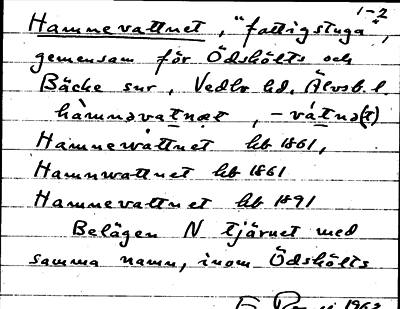 1-2
Hamnevattnet, "fattigstuga",
gemensam för Ödskölts och
Bäcke snr, Vedbo hd, Älvsb. l
hàmnəvatnət, -vátnə(t)
Hamnewattnet hb 1861,
Hamnwattnet hb 1861
Hamnevattnet hb 1891
Belägen N tjärnet med
samma namn, inom Ödskölts
1963